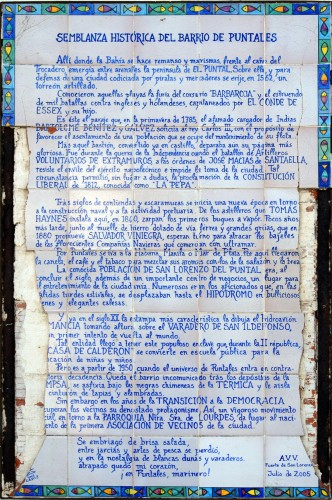 SEMBLANZA HISTÓRICA DEL BARRIO DE PUNTALES
Allí donde la Bahía se hace remanso y marismas, frente al caño del
Trocadero, emergía entre arenales la península de EL PUNTAL. Sobre ella y para
defensa de una ciudad codiciada por piratas y mercaderes se erige, en 1562, un
torreón artillado.
Conocieron aquellas playas la furia del corsario "BARBARROJA" y el estruendo
de mil batallas contra ingleses y holandeses, capitaneados por EL CONDE DE
ESSEX y su hijo.
Es este el paraje que en la primavera de 1785, el afamado cargador de Indias
BARTOLOMÉ BENÍTEZ y GÁLVEZ solicita al rey Carlos III, con el propósito de
favorecer el asentamiento de una población que se ocupe del mantenimiento de su flota.
Mas aquel bastión, convertido ya en castillo, depararía aún su página más
gloriosa. Fue durante la guerra de la Independencia cuando el batallón de Artilleros
VOLUNTARIOS DE EXTRAMUROS, a las órdenes de JOSÉ MACÍAS DE SANTAELLA,
resiste el envite del ejército napoleónico e impide la toma de la ciudad. Tal
circunstancia permitió, sin lugar a dudas, la proclamación de la CONSTITUCIÓN
LIBERAL de 1812, conocida como "LA PEPA".
Tras siglos de contiendas y escaramuzas se inicia una nueva época en torno
a la construcción naval y a la actividad portuaria. De los astilleros que TOMÁS
HAYNES instala aquí, en 1840, zarpan los primeros buques a vapor. Pocos años
más tarde, junto al muelle de hierro dotado de vía férrea y grandes grúas, que en
1860 promueve SALVADOR VINIEGRA, esperan turno para atracar los bajeles
de las florecientes Compañías Navieras que comercian con ultramar.
Por Puntales se iba a la Habana, Manila o Mar de Plata. Por aquí llegaron
la canela, el café y el tabaco para mezclar sus aromas con los de la salazón y la brea.
La conocida POBLACIÓN DE SAN LORENZO DEL PUNTAL era, al
concluir el siglo, además de un importante centro de negocios, un lugar para
el entretenimiento de la ciudadanía. Numerosos eran los aficionados que, en las
tardes estivales, se desplazaban hasta el HIPÓDROMO en bulliciosos
y elegantes calesas.
Y ya en el siglo XX la estampa más característica la dibuja el hidroavión
NUMANCIA tomando altura sobre el VARADERO DE SAN ILDEFONSO,
un primer intento de vuelta al mundo.
Tal entidad llegó a tener este populoso enclave que, durante la II república,
CASA DE CALDERÓN se convierte en escuela pública para la
de niños y niñas.
Pero a partir de 1950 cuando el universo de Puntales entra en
decadencia. Queda el barrio incomunicado tras los depósitos de la
CAMPSA, se asfixia bajo las negras chimeneas de la TÉRMICA y le aísla
de tapias y alambradas.
Sin embargo en los años de la TRANSICIÓN A LA DEMOCRACIA
recuperan los vecinos su denostado protagonismo. Así, un vigoroso movimiento
en torno a la PARROQUIA Ntra. Sra. de LOURDES, da lugar al
de una primera ASOCIACIÓN DE VECINOS de la ciudad.
Se embriago de brisa salada,
entre jarcias y artes de pesca se perdió,
y en la nostalgia de blancas dunas y varaderos.
atrapado quedó mi corazón,
¡en Puntales, marinero!
A.V.V.
Fuerte de San Lorenzo
Julio de 2005